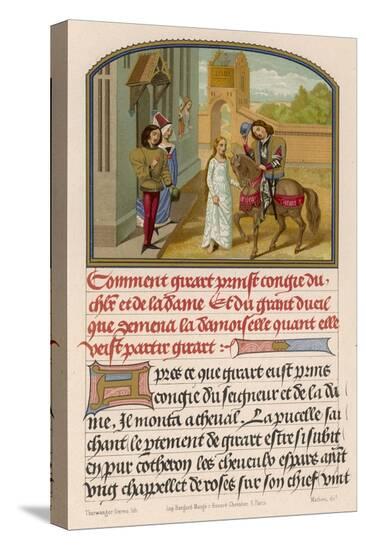 Comment girart prinst congie du
chlr et de la dame Et du grant dueil
que demena la damoiselle quant elle
veist partir girart :~
Apres ce que girart eust prins
congie du seigneur et de la da
me, Il monta a cheval. La pucelle sai
chant le ptement de girart estre si subit
en pur cotheron les cheveulx espars aiāt
ung chappellet de roses sur son chief vint
Thurwanger frères, lith.
Imp. Hangard-Maugé r. Honoré-Chevalier, 5, Paris.
Mathieu, dirt